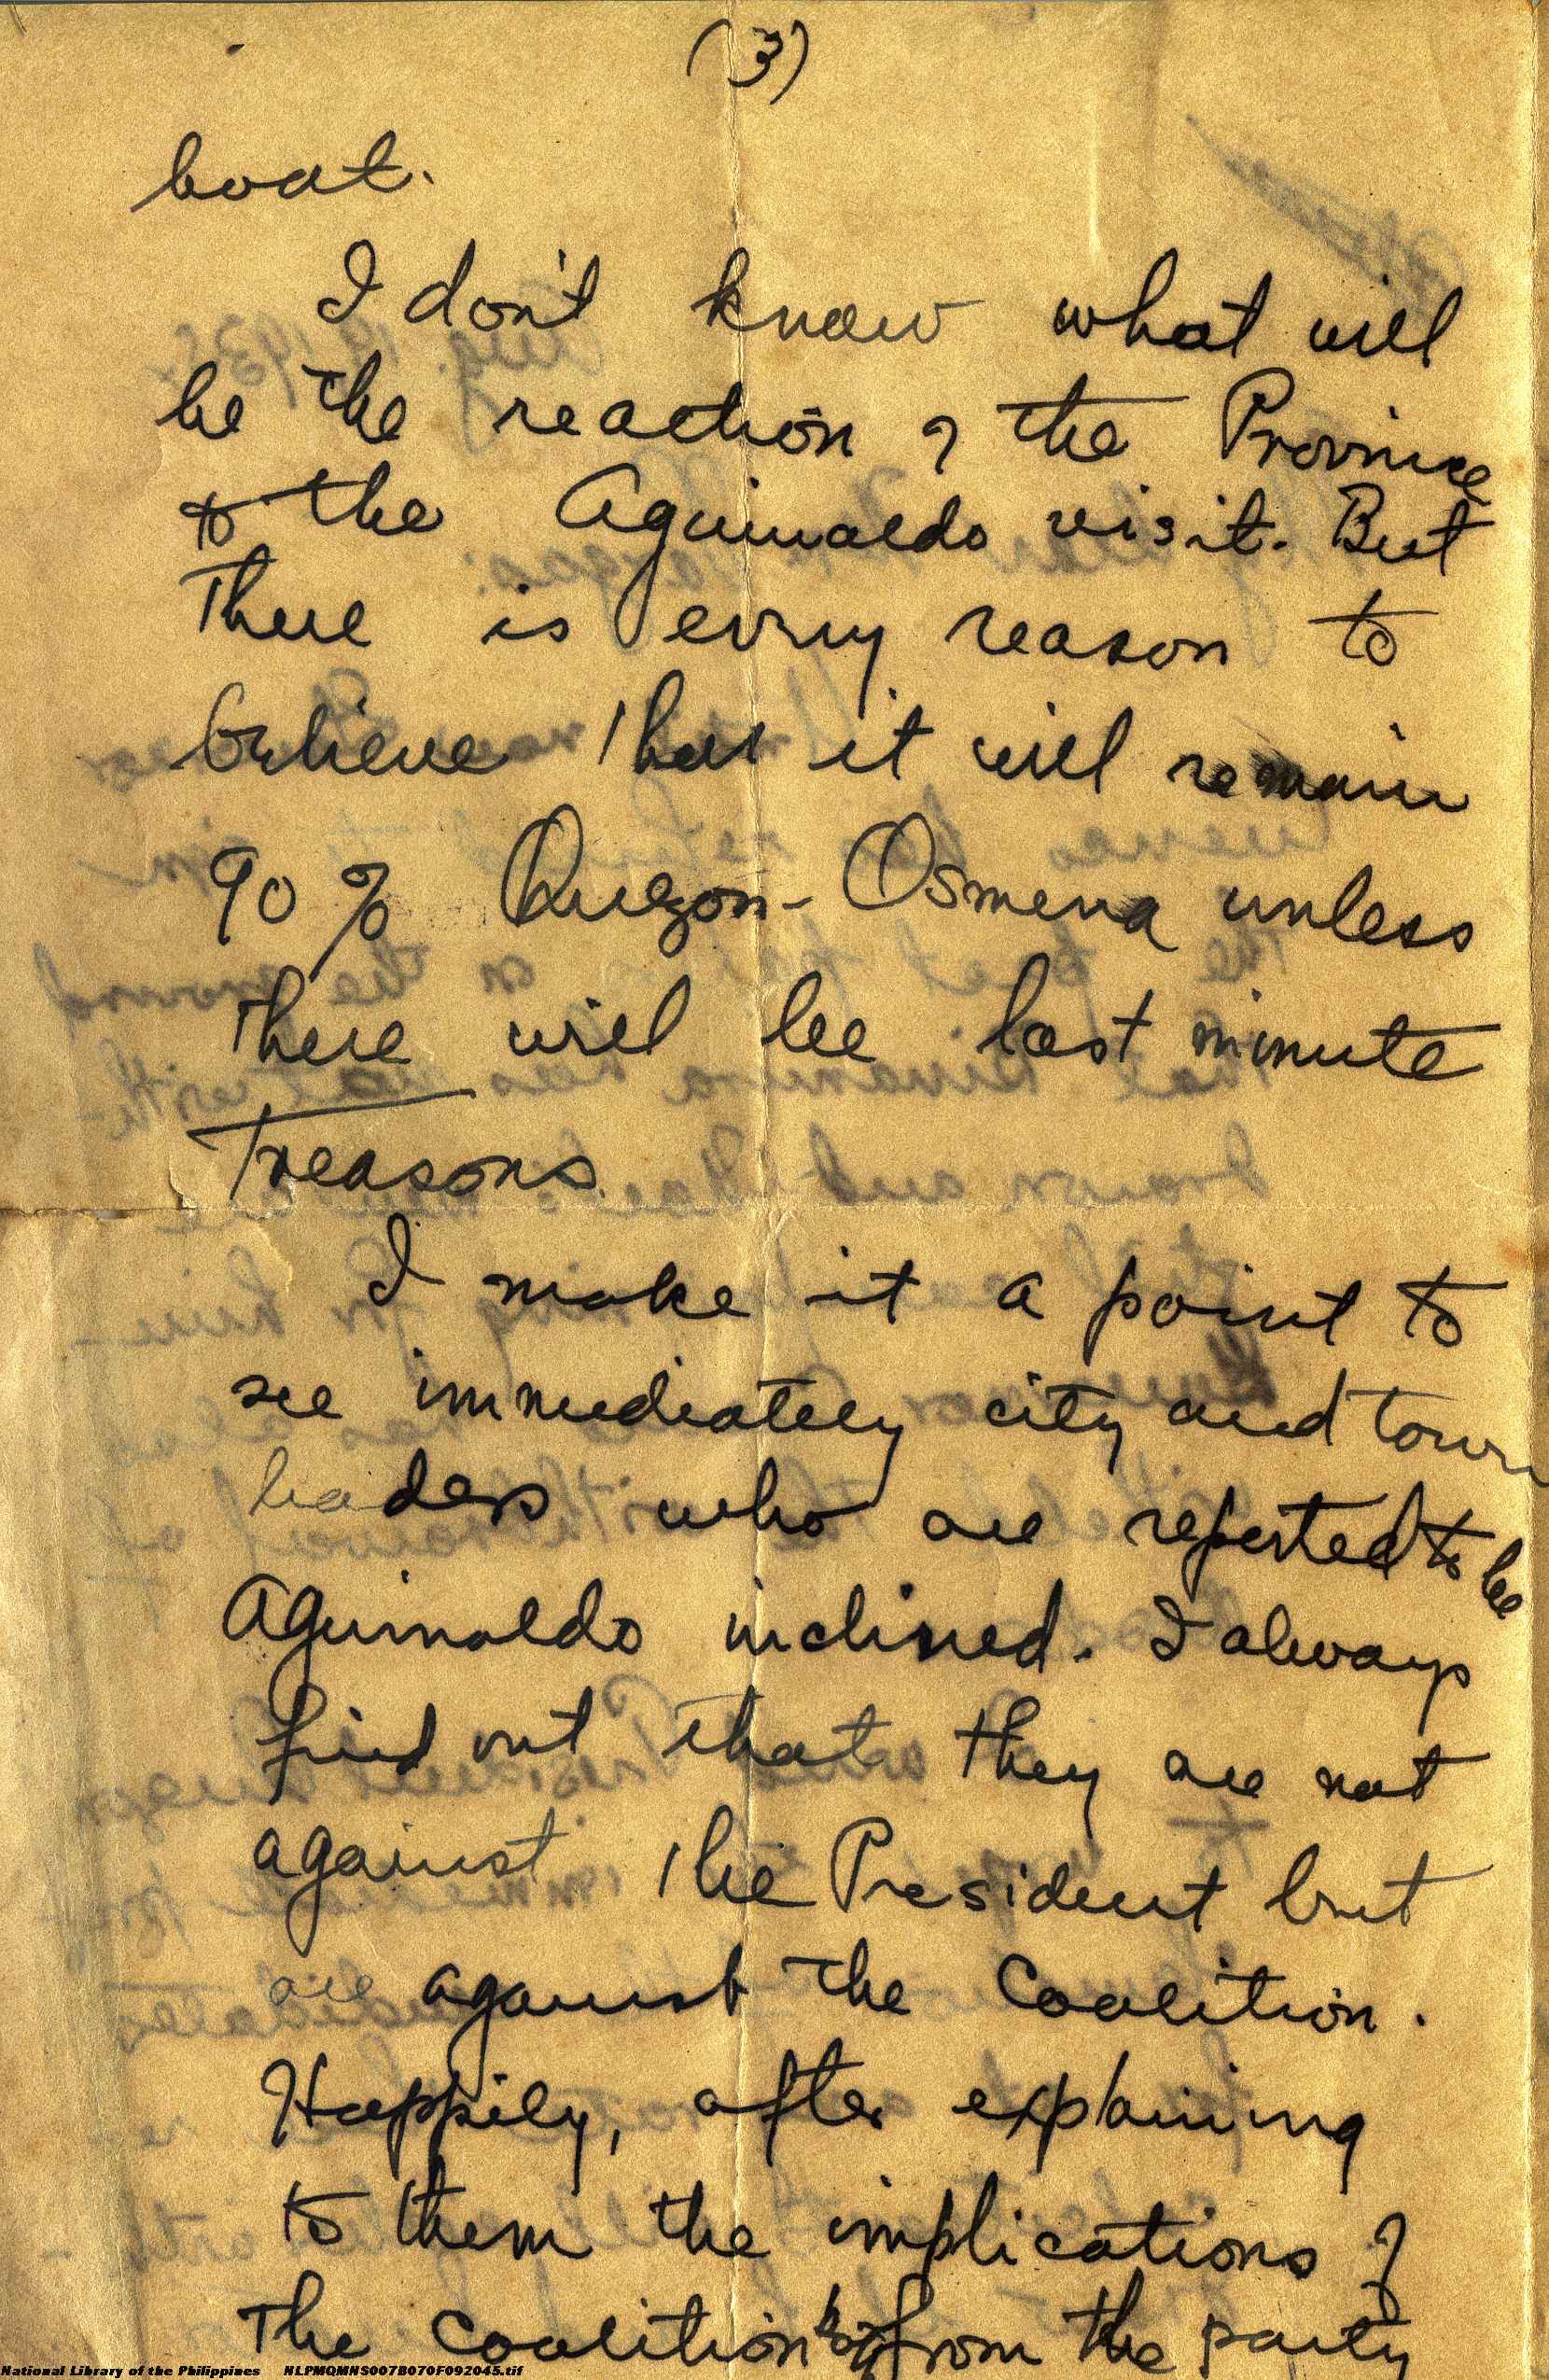 (3)
boat.
I don't know what will
be the reaction of the Province
to the Aguinaldo visit. But
there is every reason to
believe that it will remain
90% Quezon-Osmena unless
there will be last minute
treasons.
I make it a point to
see immediately city and town
leaders who are reported to be
Aguinaldo inclined. I always
find out that they are not
against the President but
are against the Coalition.
Happily, after explaining
to them the implications of
the coalition from the party
National Library of the Philippines NLPMQMNS007B070F092045.tif